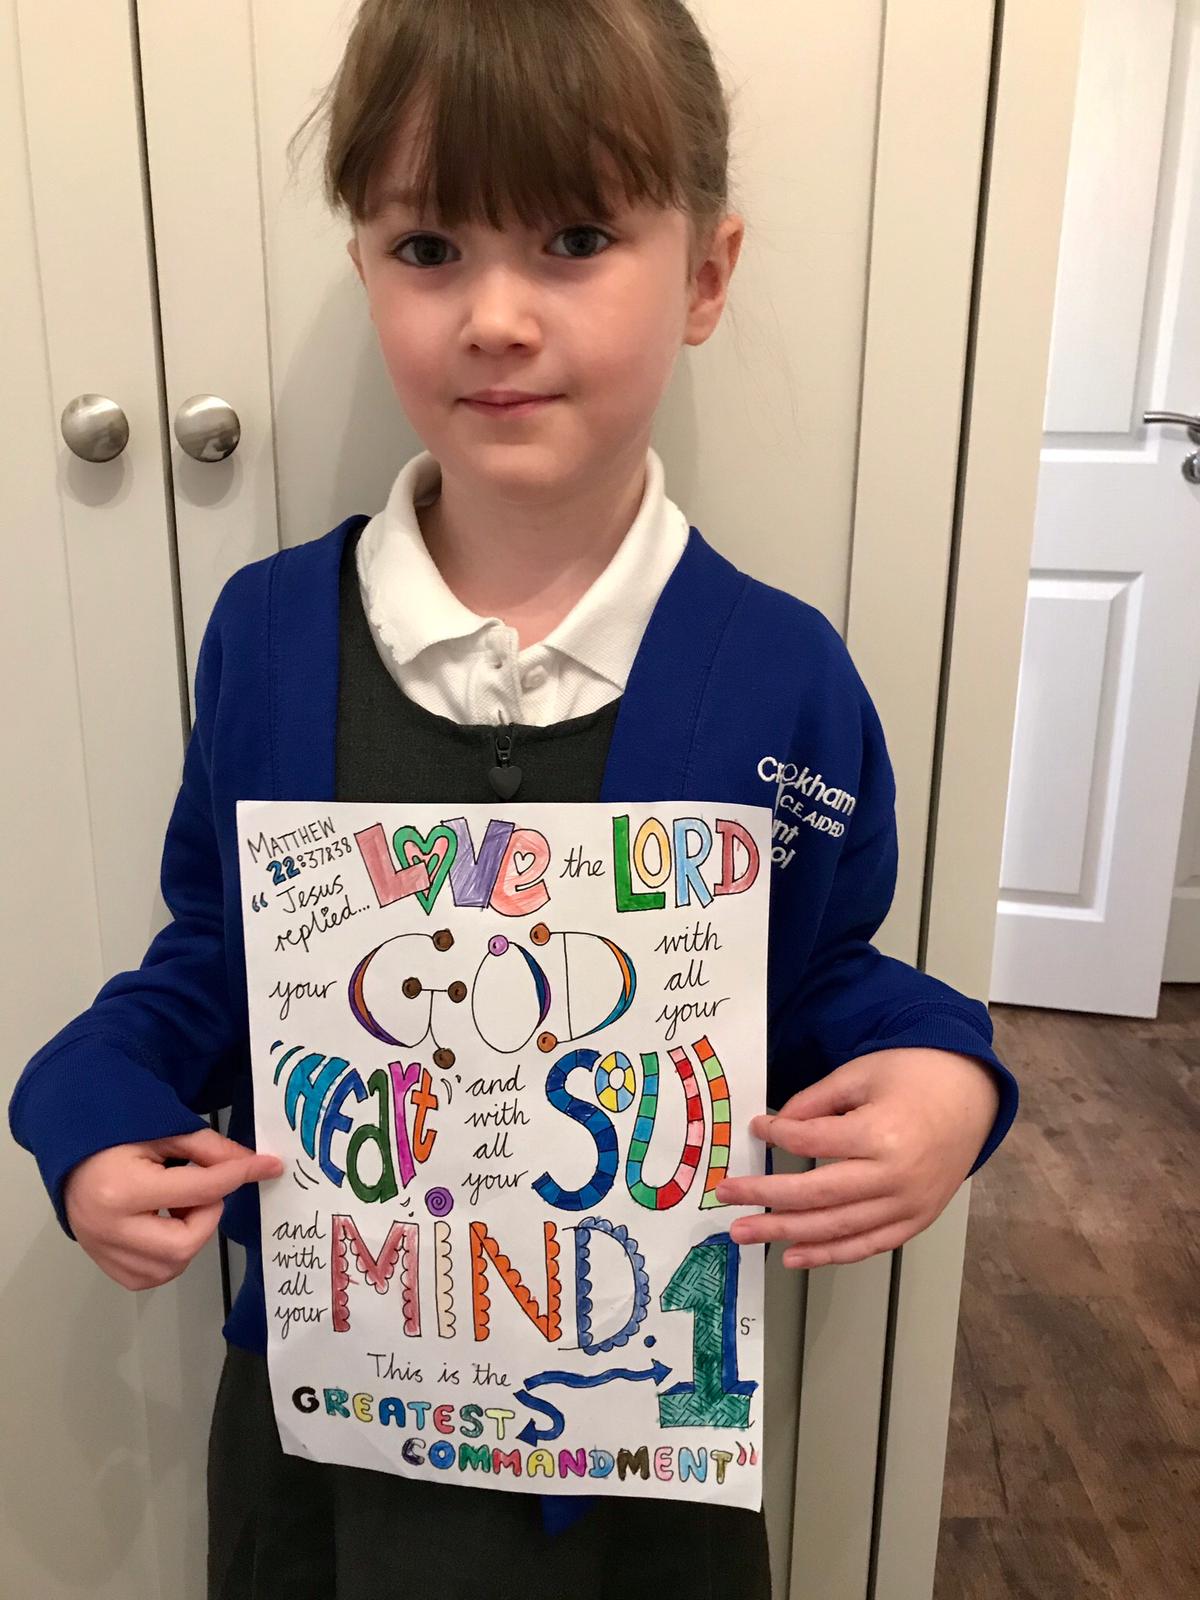 MATTHEW
22:37&38
“ Jesus
replied...
LOVE the LORD
your GOD with
all
your
HEart and
with
all
your
SOUL
and
with
all
your
MiND.
This is the 1 S
GREATEST
COMMANDMENT”
C.E. AIDED